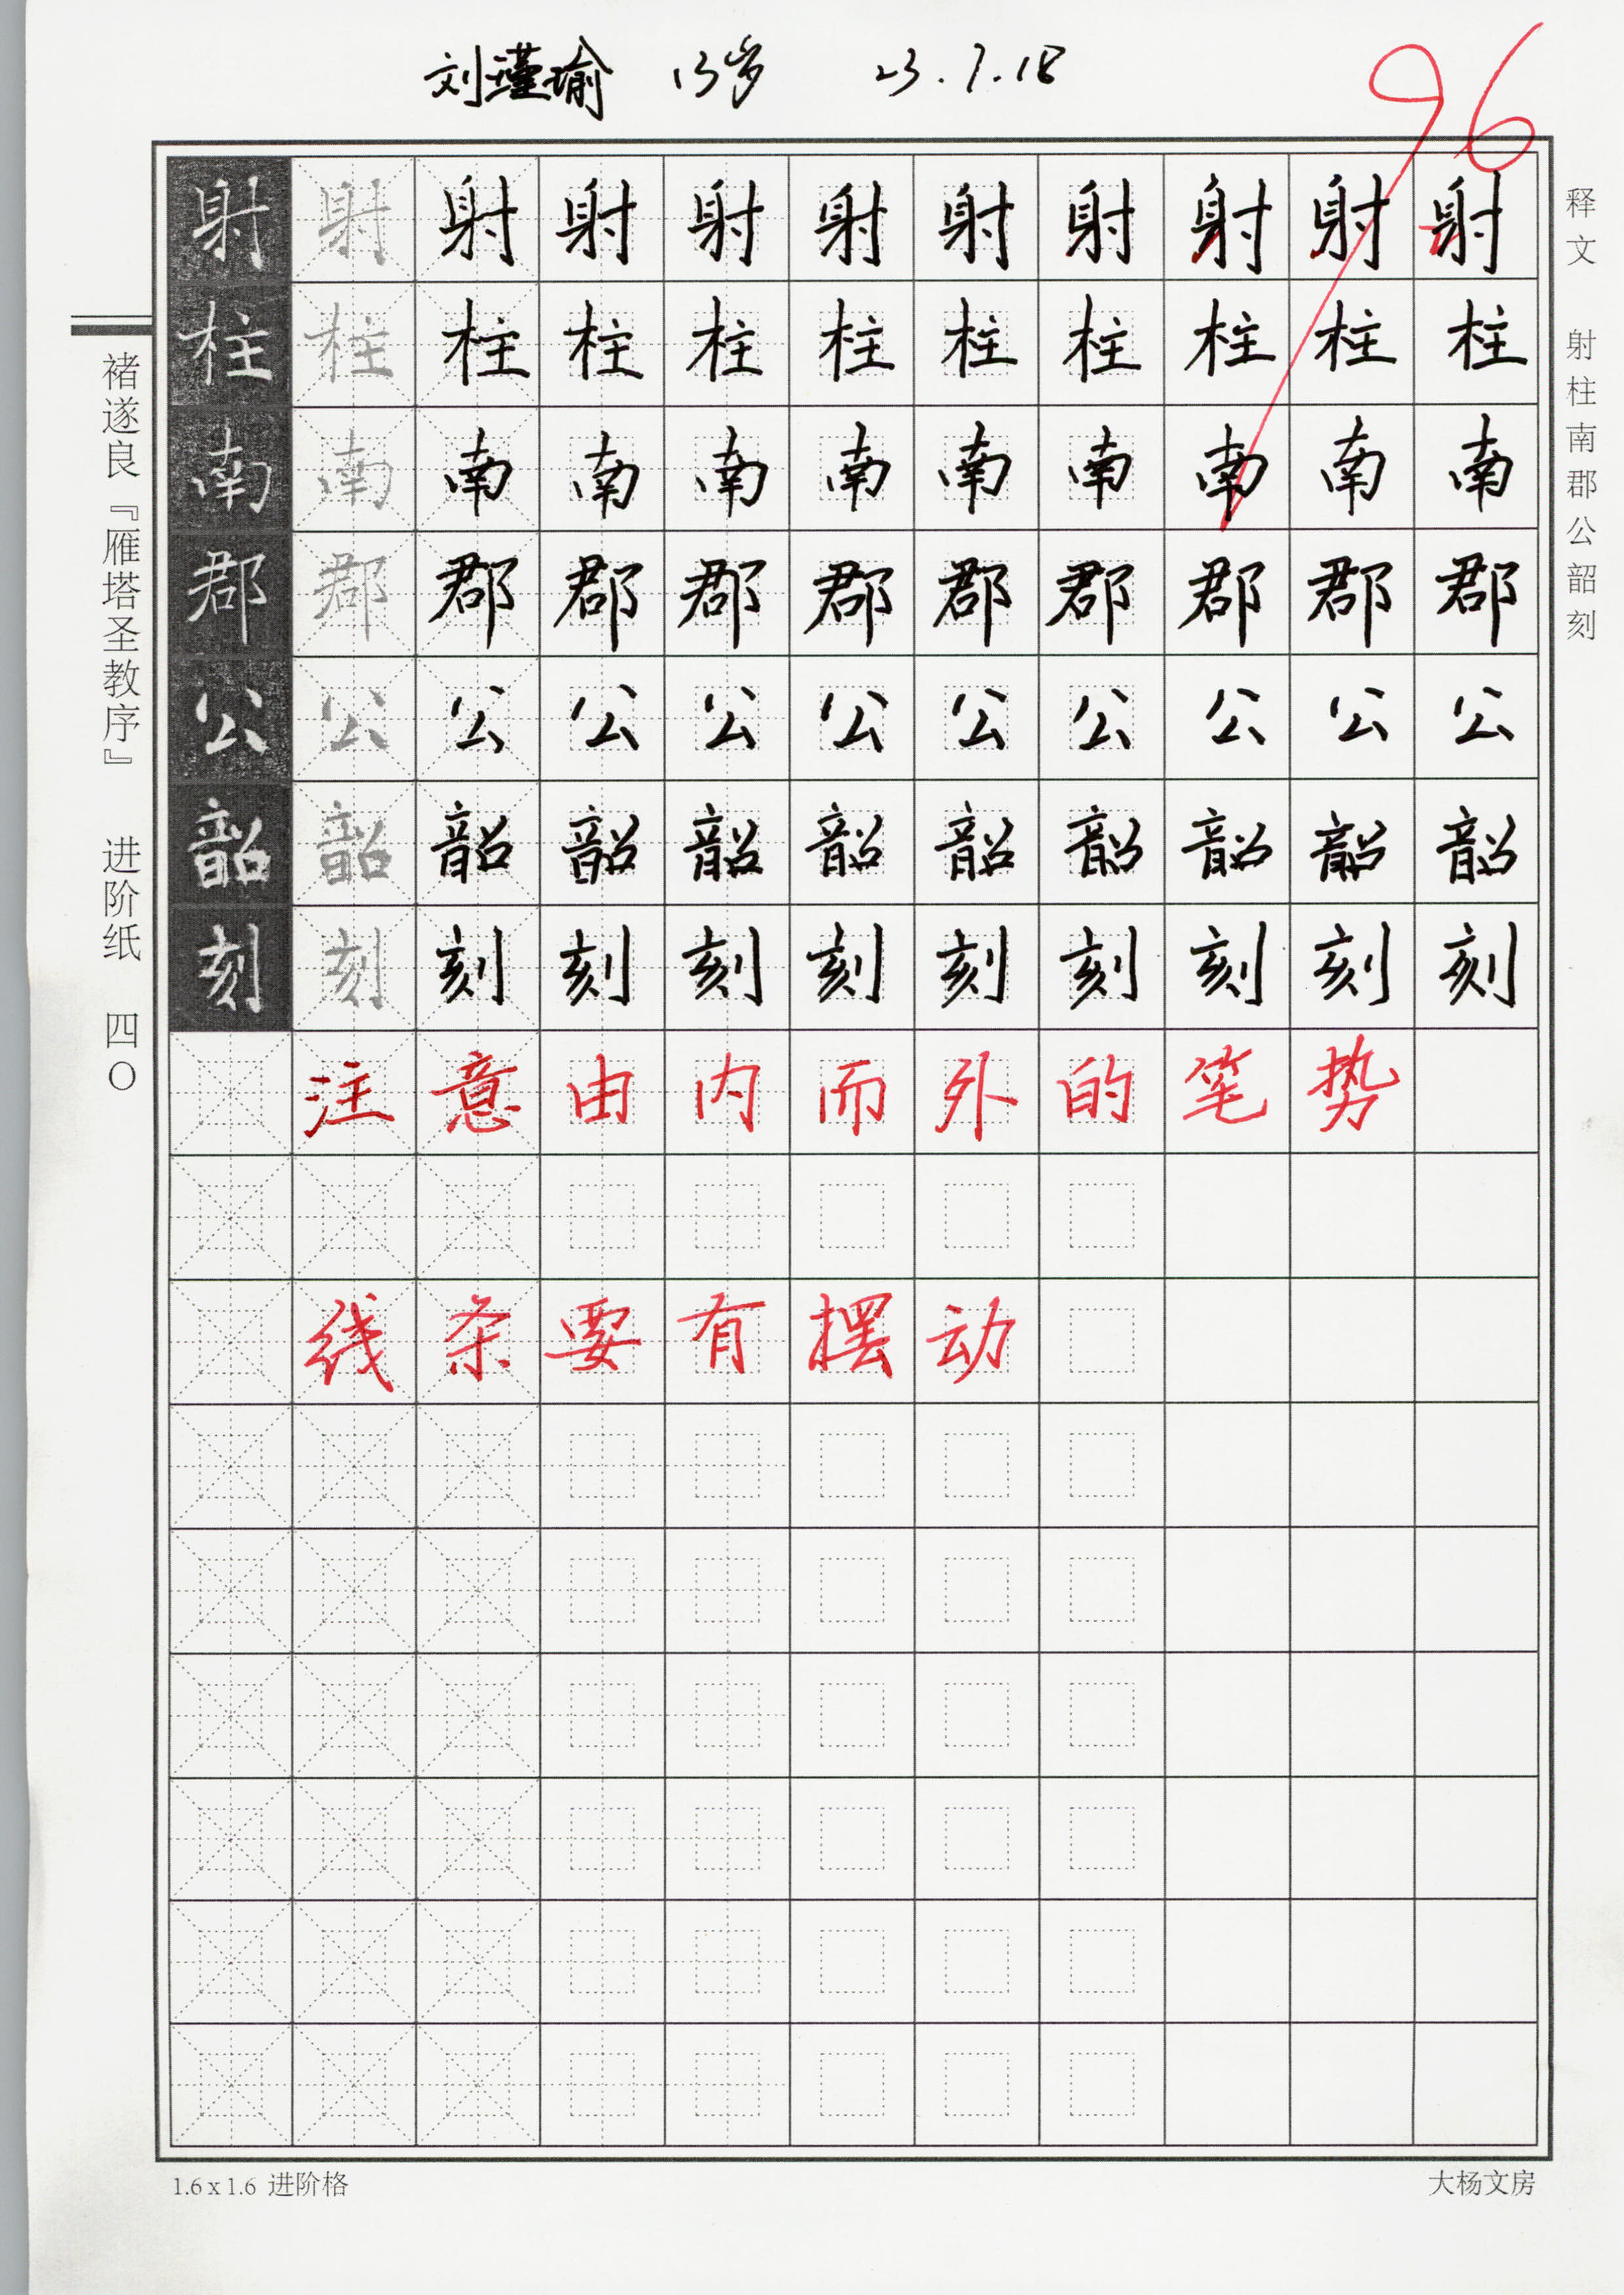 刘瑾瑜 13岁 23.7.18
96
释文 射柱南郡公韶刻
褚遂良『雁塔圣教序』 进阶纸 四〇
射射射射射射射射射射射
柱柱柱柱柱柱柱柱柱柱柱
南南南南南南南南南南南
郡郡郡郡郡郡郡郡郡郡郡
公公公公公公公公公公公
韶韶韶韶韶韶韶韶韶韶韶
刻刻刻刻刻刻刻刻刻刻刻
注意由内而外的笔势
线条要有摆动
1.6x1.6 进阶格
大杨文房